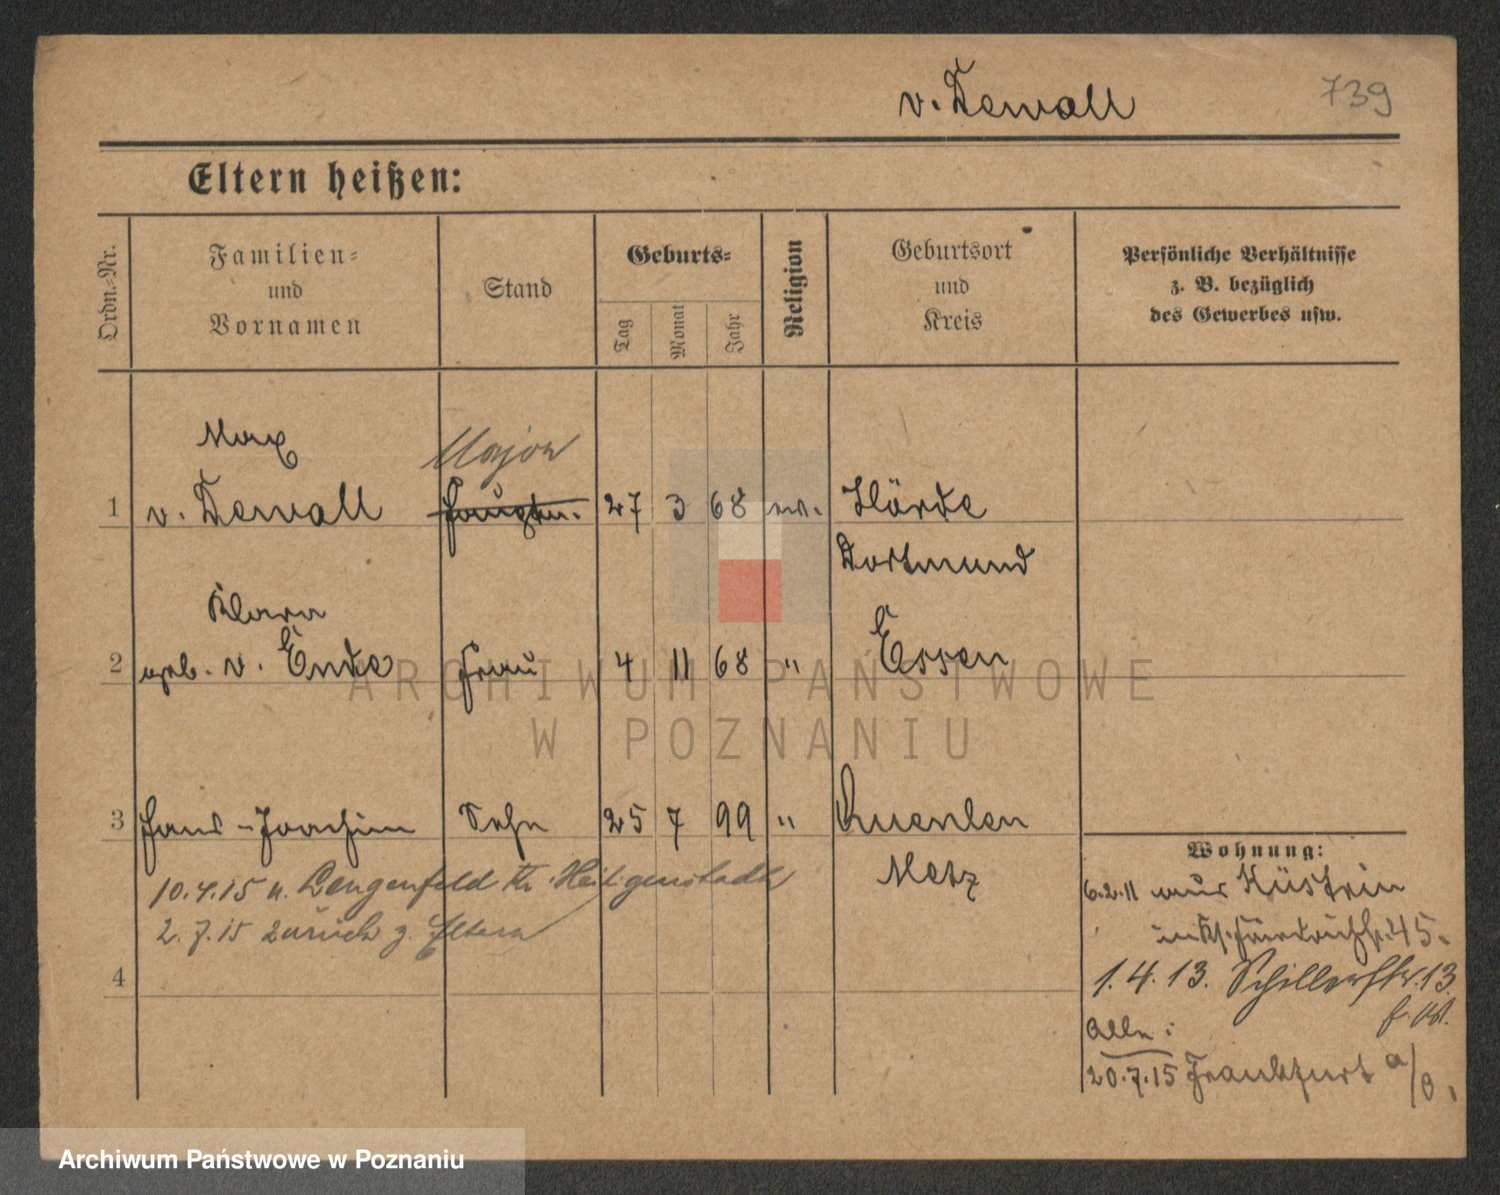 v. Dewall
739
Eltern heißen:
Ordn.-Nr.
Familien-
und
Vornamen
Stand
Geburts-
Tag
Monat
Jahr
Religion
Geburtsort
und
Kreis
Persönliche Verhältnisse
z. B. bezüglich
des Gewerbes usw.
Max
Major
1 v. Dewall Hauptm. 27 3 68 ev. Hörde
Dortmund
Klara
2 geb. v. Ende Frau 4 11 68 " Essen
3 Hans-Joachim Sohn 25 7 99 " Queulen
Metz
10.4.15 n. Lengenfeld Kr. Heiligenstadt
2.7.15 zurück z. Eltern
4
Wohnung:
6.2.11 aus Küstrin
45.
1.4.13. Schillerstr. 13.
Alle:
20.7.15 Frankfurt a/O.
ARCHIWUM PAŃSTWOWE
W POZNANIU
Archiwum Państwowe w Poznaniu